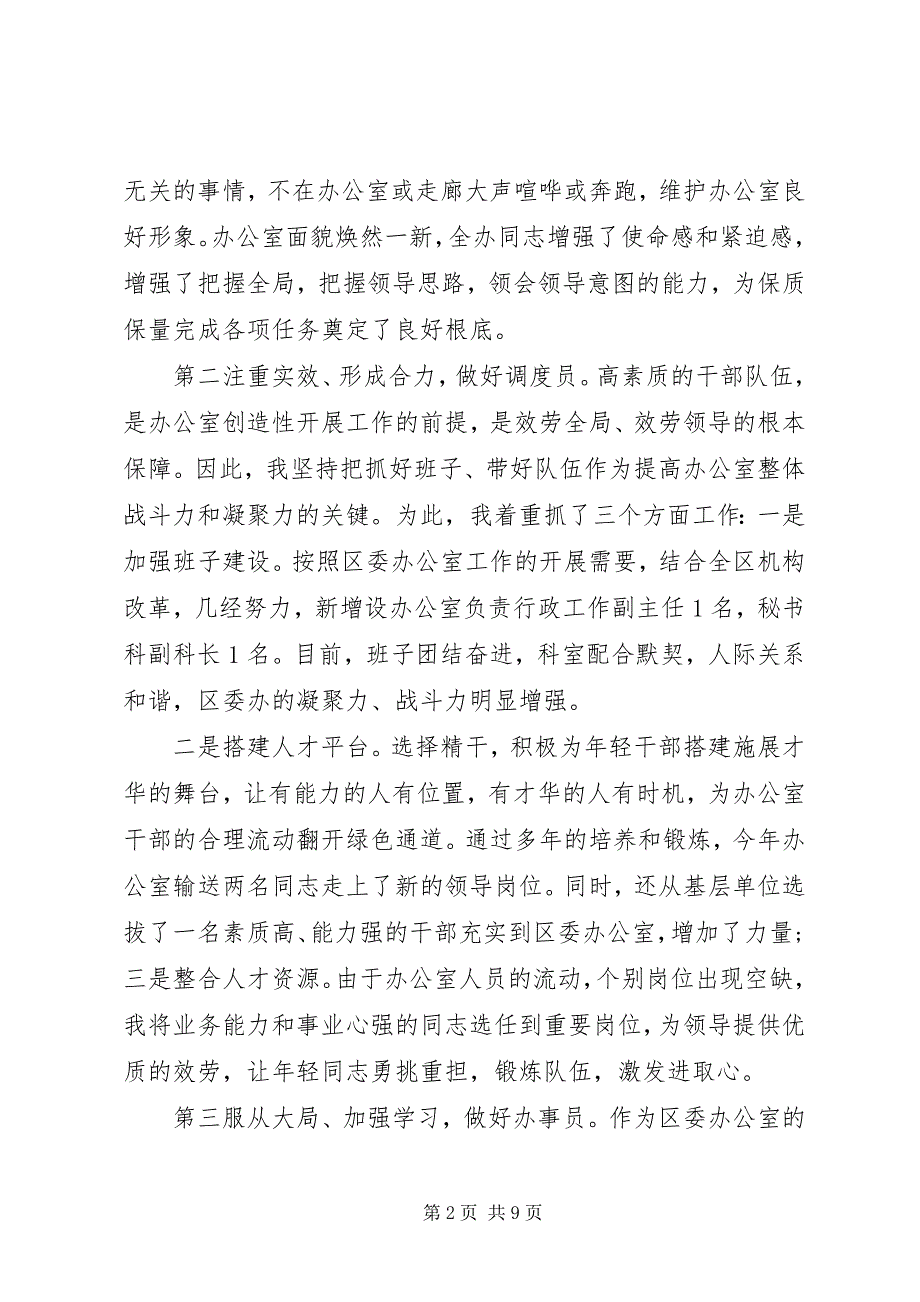 无关的事情，不在办公室或走廊大声喧哗或奔跑，维护办公室良
好形象。办公室面貌焕然一新，全办同志增强了使命感和紧迫感，
增强了把握全局，把握领导思路，领会领导意图的能力，为保质
保量完成各项任务奠定了良好根底。
第二注重实效、形成合力，做好调度员。高素质的干部队伍，
是办公室创造性开展工作的前提，是效劳全局、效劳领导的根本
保障。因此，我坚持把抓好班子、带好队伍作为提高办公室整体
战斗力和凝聚力的关键。为此，我着重抓了三个方面工作：一是
加强班子建设。按照区委办公室工作的开展需要，结合全区机构
改革，几经努力，新增设办公室负责行政工作副主任 1 名，秘书
科副科长 1 名。目前，班子团结奋进，科室配合默契，人际关系
和谐，区委办的凝聚力、战斗力明显增强。
二是搭建人才平台。选择精干，积极为年轻干部搭建施展才
华的舞台，让有能力的人有位置，有才华的人有时机，为办公室
干部的合理流动翻开绿色通道。通过多年的培养和锻炼，今年办
公室输送两名同志走上了新的领导岗位。同时，还从基层单位选
拔了一名素质高、能力强的干部充实到区委办公室，增加了力量;
三是整合人才资源。由于办公室人员的流动，个别岗位出现空缺，
我将业务能力和事业心强的同志选任到重要岗位，为领导提供优
质的效劳，让年轻同志勇挑重担，锻炼队伍，激发进取心。
第三服从大局、加强学习，做好办事员。作为区委办公室的
第 2 页 共 9 页